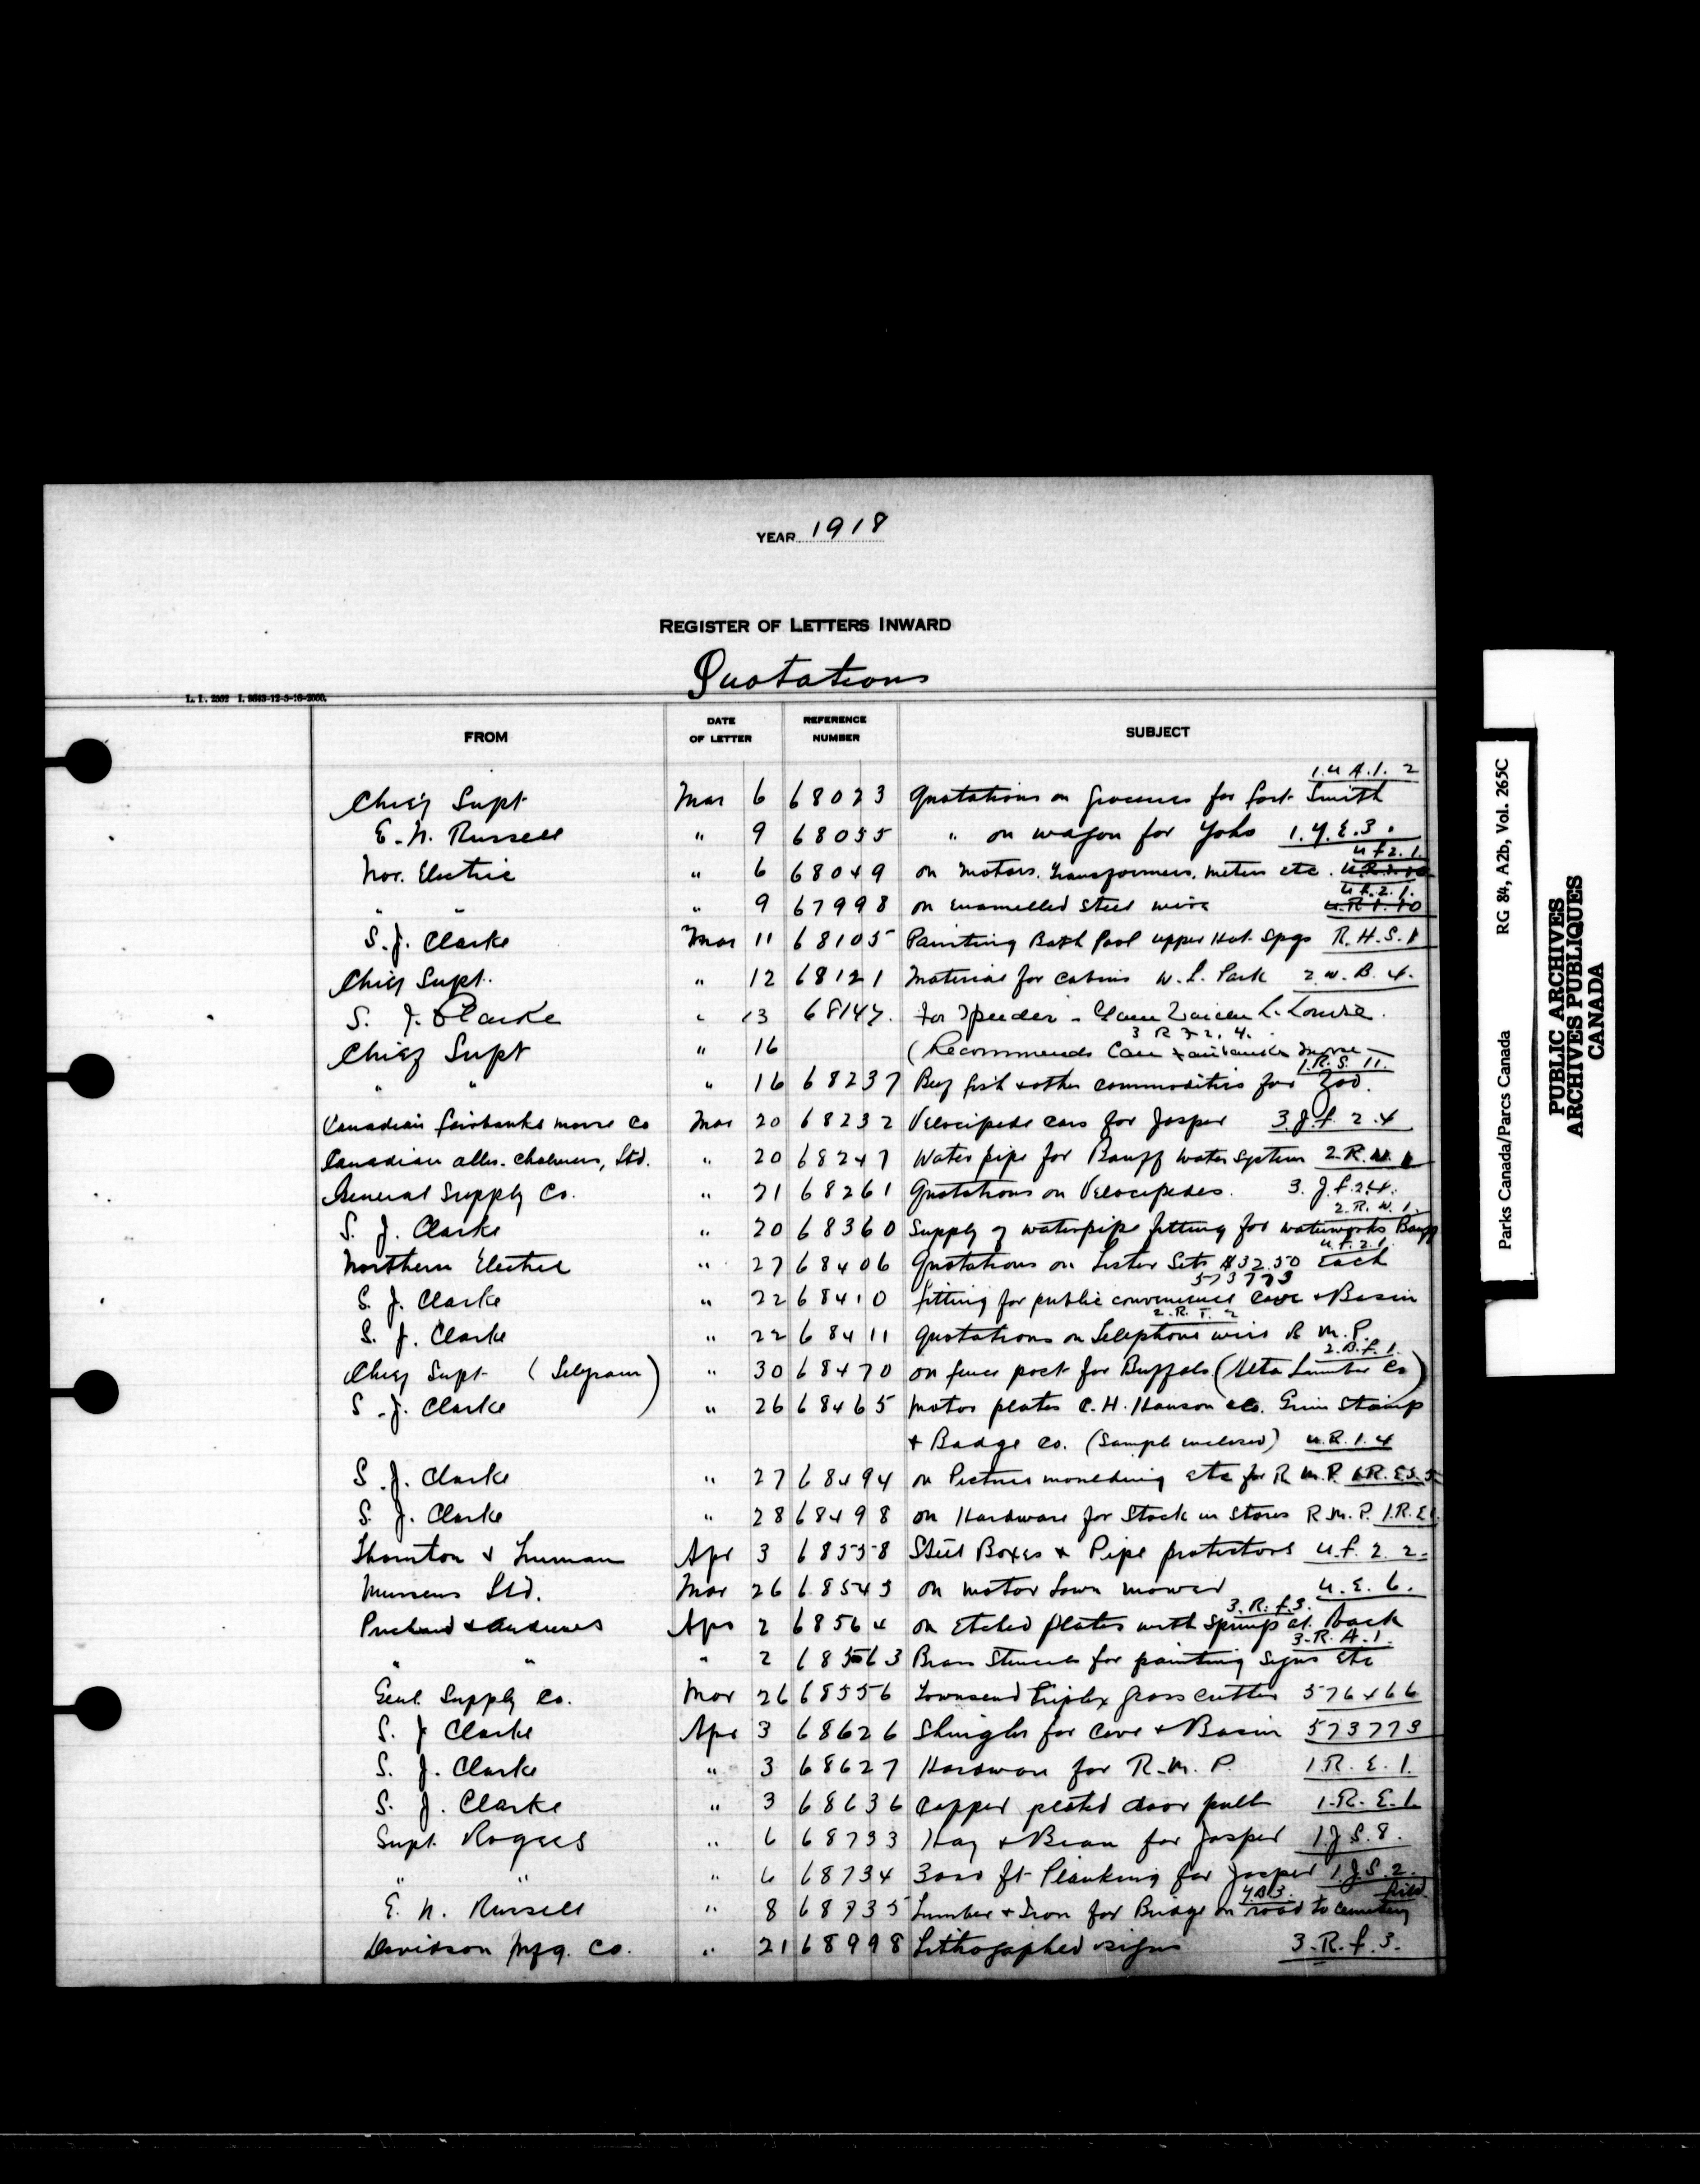 YEAR 1918
REGISTER OF LETTERS INWARD
Quotations
L. I. 2552 I. 9643-12-3-16-2000.
FROM DATE OF LETTER REFERENCE NUMBER SUBJECT
1.U A.1. 2
Chief Supt Mar 6 68023 Quotations on Groceries for Fort Smith
E. N. Russell " 9 68055 " on wagon for Yoho 1.Y.E.3.
U f 2.1.
Nor. Electric " 6 68049 on Motors. Transformers. meters etc.
U f.2.1.
" " " 9 67998 on Enamelled Steel wire U.R.1.10
S. J. Clarke Mar 11 68105 Painting Bath Pool upper Hot Spgs R.H.S.1
Chief Supt. " 12 68121 Material for cabins W. L. Park 2.W.B.4.
S. J. Clarke " 13 68147. for Speeder - Game Warden L. Louise.
3 R F 2. 4.
Chief Supt " 16 (Recommends Can Fairbanks Morse —
1.R.S. 11.
" " " 16 68237 Beef fish & other commodities for Zoo.
Canadian fairbanks morse Co Mar 20 68232 Velocipede cars for Jasper 3.J.f.2.4
Canadian Allis. Chalmers, Ltd. " 20 68247 Water pipe for Banff water system 2.R.W.1
General Supply Co. " 21 68261 Quotations on Velocipedes. 3.J.f.2.4.
2.R.W.1.
S. J. Clarke " 20 68360 Supply of waterpipe fitting for waterworks Banff
U.f.2.1.
Northern Electric " 27 68406 Quotations on Lister Sets $32.50 Each
573773
S. J. Clarke " 22 68410 fitting for public convenience Cave & Basin
2.R.T.2
S. J. Clarke " 22 68411 Quotations on Telephone wire R M.P.
2.B.f.1.
Chief Supt (Telegram) " 30 68470 on fence post for Buffalo (Alta Lumber Co)
S. J. Clarke " 26 68465 Motor plates C.H. Hanson Co. Stamp
& Badge Co. (Sample enclosed) U.R.1.4
S. J. Clarke " 27 68494 on Picture moulding etc for R M.P. 1R.E.S.5
S. J. Clarke " 28 68498 on Hardware for Stock in Stores R.M.P. 1.R.E1.
Thornton & Truman Apr 3 68558 Steel Boxes & Pipe protectors U.f.2.2.
Mussens Ltd. Mar 26 68543 on motor Lawn mower U.E.6.
3.R.f.3.
Pritchard & Andrews Apr 2 68564 on Etched plates with springs at back
3.R.A.1.
" " " 2 68563 Brass Stencils for painting signs etc
Genl. Supply Co. Mar 26 68556 Townsend Triplex grass cutter 576466
S. J Clarke Apr 3 68626 Shingles for Cave & Basin 573773
S. J. Clarke " 3 68627 Hardware for R.M.P. 1R.E.1.
S. J. Clarke " 3 68636 Copper plated door pull 1.R.E.1
Supt. Rogers " 6 68733 Hay & Bran for Jasper 1J S.8.
" " " 6 68734 3000 ft Planking for Jasper 1.J.S.2.
Y.B.3. field
E. N. Russell " 8 68735 Lumber & Iron for Bridge on road to cemetery
Davidson Mfg. Co. " 21 68998 Lithographed signs 3.R.f.3.
Parks Canada/Parcs Canada RG 84, A2b, Vol. 265C
PUBLIC ARCHIVES
ARCHIVES PUBLIQUES
CANADA